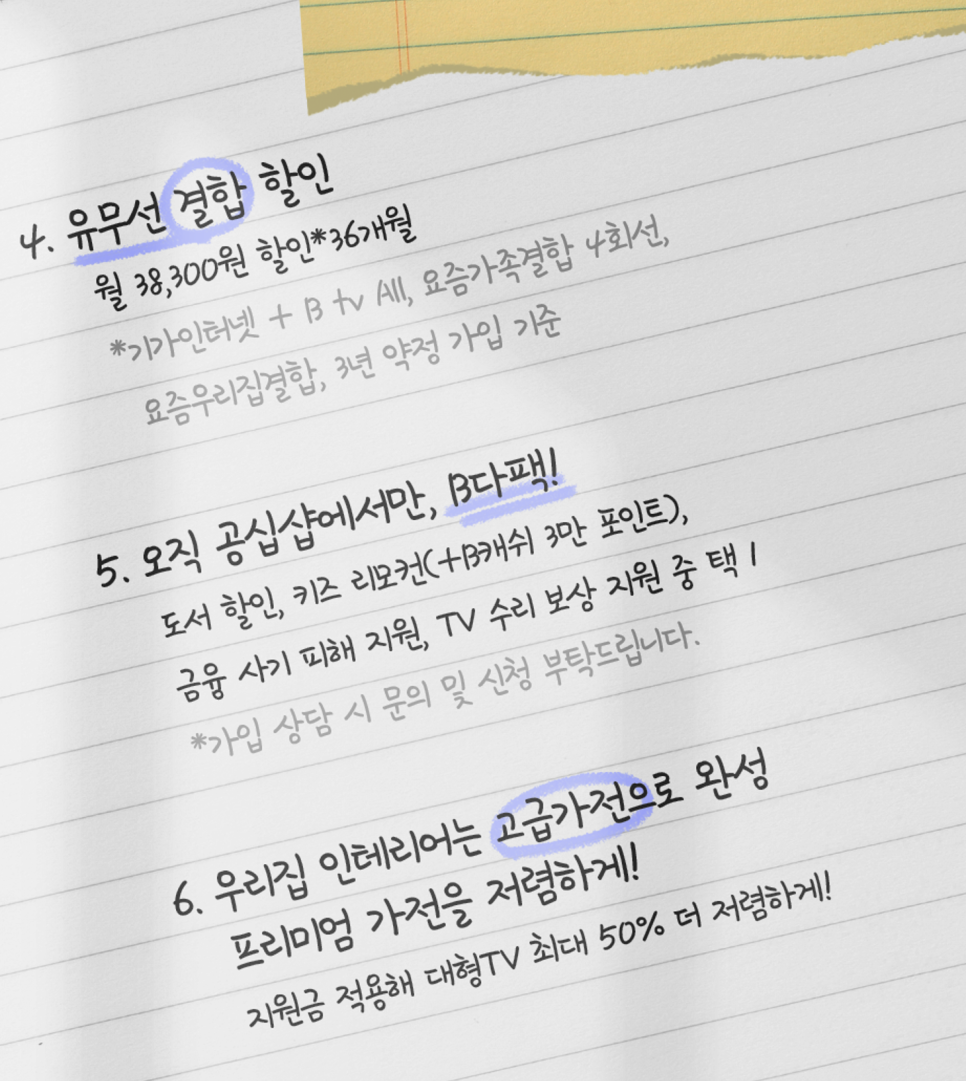 4. 유무선 결합 할인
월 38,300원 할인*36개월
*기가인터넷 + B tv All, 요즘가족결합 4회선,
요즘우리집결합, 3년 약정 가입 기준
5. 오직 공십샵에서만, B다팩!
도서 할인, 키즈 리모컨(+B캐쉬 3만 포인트),
금융 사기 피해 지원, TV 수리 보상 지원 중 택 1
*가입 상담 시 문의 및 신청 부탁드립니다.
6. 우리집 인테리어는 고급가전으로 완성
프리미엄 가전을 저렴하게!
지원금 적용해 대형TV 최대 50% 더 저렴하게!